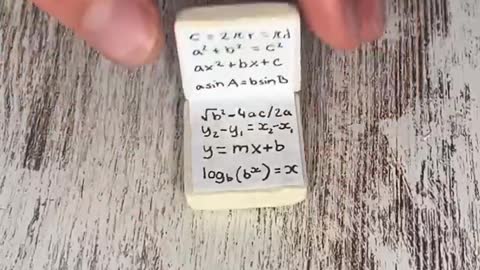 c = 2πr = πd
a² + b² = c²
ax² + bx + c
asinA = bsinB
√b²-4ac/2a
y₂-y₁ = x₂-x₁
y = mx+b
log_b(bˣ) = x